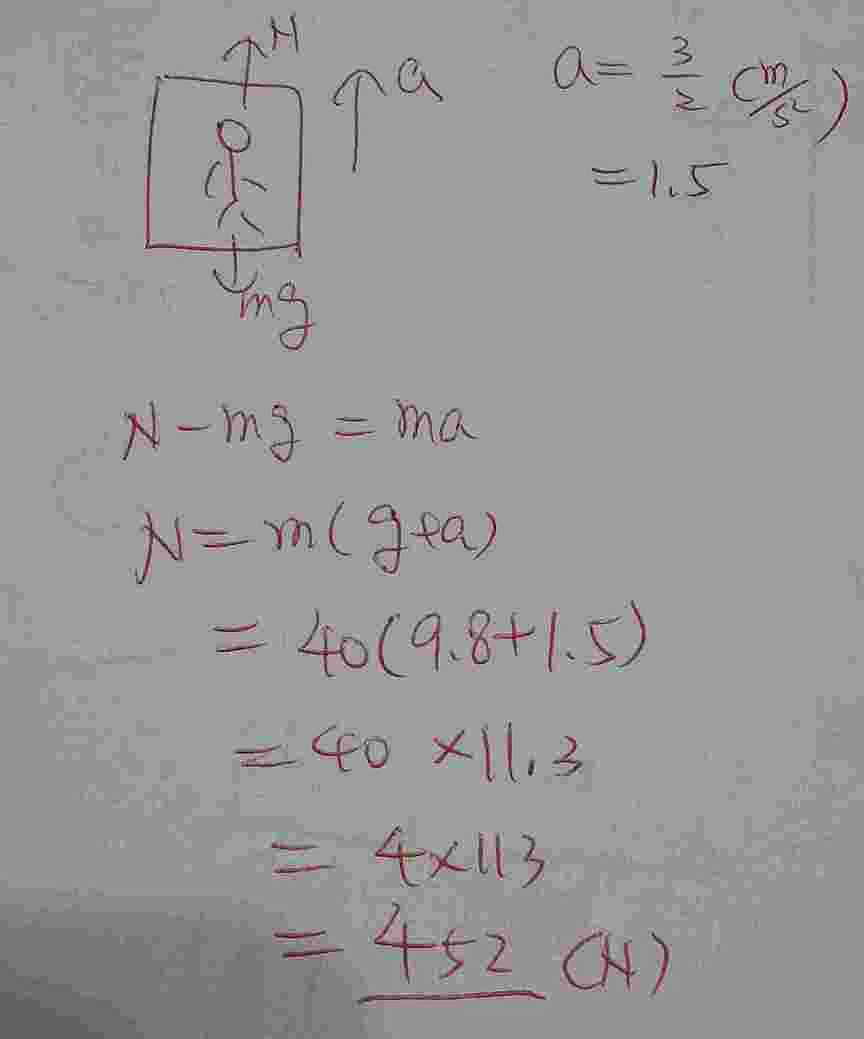 N
a
a = 3/2 (m/s²)
= 1.5
mg
N - mg = ma
N = m(g+a)
= 40(9.8+1.5)
= 40 × 11.3
= 4×113
= 452 (N)